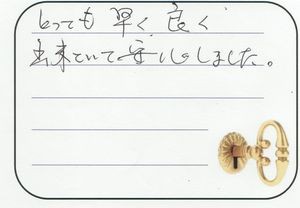 とっても 早く 良く
出来ていて 安心しました。